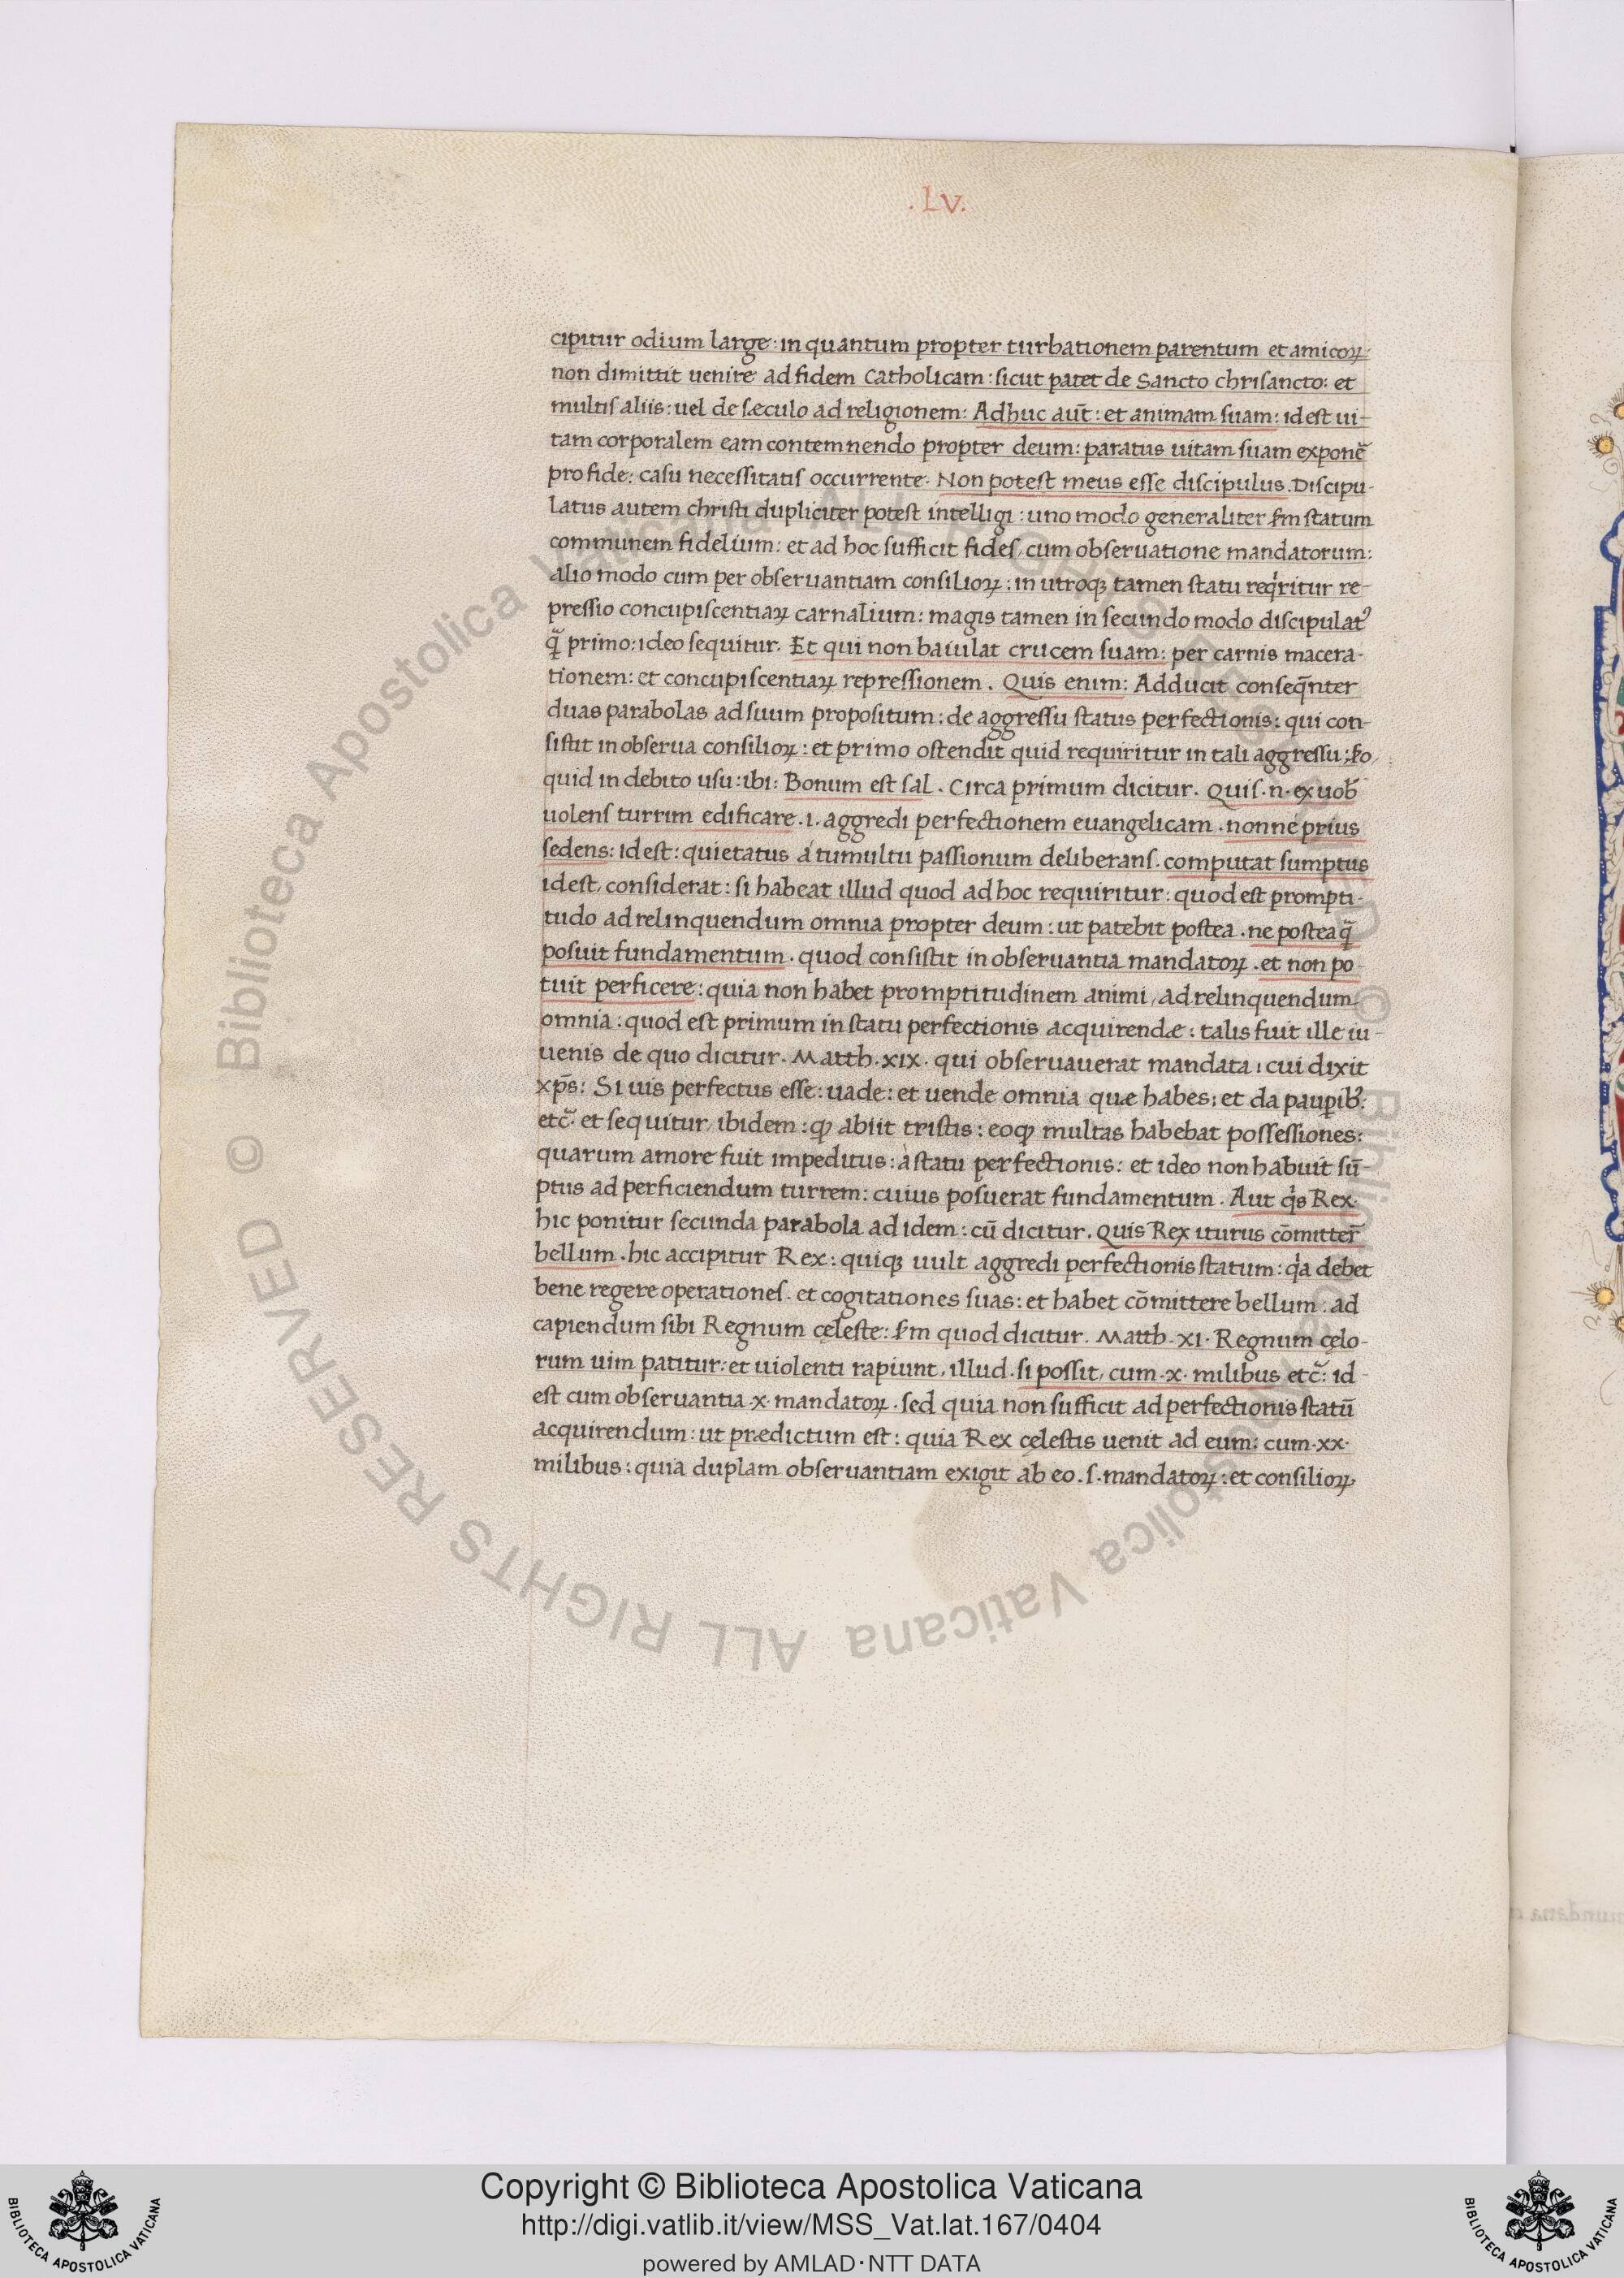 .LV.
cipitur odium large: in quantum propter turbationem parentum et amicoꝝ:
non dimittit uenire ad fidem Catholicam: sicut patet de Sancto chrisancto: et
multis aliis: uel de sæculo ad religionem: Adhuc aut̄: et animam suam: id est ui-
tam corporalem eam contemnendo propter deum: paratus uitam suam exponẽ
pro fide: casu necessitatis occurrente. Non potest meus esse discipulus. Discipu-
latus autem christi dupliciter potest intelligi: uno modo generaliter ẜm statum
communem fidelium: et ad hoc sufficit fides, cum obseruatione mandatorum:
alio modo cum per obseruantiam consilioꝝ: in utroqꝫ tamen statu reqͥritur re-
pressio concupiscentiaꝝ carnalium: magis tamen in secundo modo discipulatꝰ
q̃ primo: ideo sequitur. Et qui non baiulat crucem suam: per carnis macera-
tionem: et concupiscentiaꝝ repressionem. Quis enim: Adducit conseq̄nter
duas parabolas ad suum propositum: de aggressu status perfectionis: qui con-
sistit in obserua consilioꝝ: et primo ostendit quid requiritur in tali aggressu: ẜo,
quid in debito usu: ibi: Bonum est sal. Circa primum dicitur. Quis.n. ex uob̃
uolens turrim edificare.i. aggredi perfectionem euangelicam. nonne prius
sedens: id est: quietatus a tumultu passionum deliberans. computat sumptus
id est, considerat: si habeat illud quod ad hoc requiritur: quod est prompti-
tudo ad relinquendum omnia propter deum: ut patebit postea. ne postea q̃
posuit fundamentum. quod consistit in obseruantia mandatoꝝ. et non po-
tuit perficere: quia non habet promptitudinem animi, ad relinquendum
omnia: quod est primum in statu perfectionis acquirendæ: talis fuit ille iu-
uenis de quo dicitur. Matth. xix. qui obseruauerat mandata: cui dixit
xp̄s: Si uis perfectus esse: uade: et uende omnia quæ habes: et da paup̱ibꝰ:
etc̃. et sequitur, ibidem: ꝙ abiit tristis: eoꝙ multas habebat possessiones:
quarum amore fuit impeditus: à statu perfectionis: et ideo non habuit sū-
ptus ad perficiendum turrem: cuius posuerat fundamentum. Aut qͥs Rex.
hic ponitur secunda parabola ad idem: cū dicitur. Quis Rex iturus cōmitter̃
bellum. hic accipitur Rex: quiqꝫ uult aggredi perfectionis statum: qͥa debet
bene regere operationes. et cogitationes suas: et habet cōmittere bellum: ad
capiendum sibi Regnum cęleste: ẜm quod dicitur. Matth. xi. Regnum cęlo-
rum uim patitur: et uiolenti rapiunt, illud. si possit, cum .x. milibus etc̃: id
est cum obseruantia .x. mandatoꝝ. sed quia non sufficit ad perfectionis statū
acquirendum: ut prædictum est: quia Rex cęlestis uenit ad eum: cum .xx.
milibus: quia duplam obseruantiam exigit ab eo.s. mandatoꝝ: et consilioꝝ,
© Biblioteca Apostolica Vaticana ALL RIGHTS RESERVED © Biblioteca Apostolica Vaticana ALL RIGHTS RESERVED
Copyright © Biblioteca Apostolica Vaticana
http://digi.vatlib.it/view/MSS_Vat.lat.167/0404
powered by AMLAD・NTT DATA
BIBLIOTECA APOSTOLICA VATICANA
BIBLIOTECA APOSTOLICA VATICANA